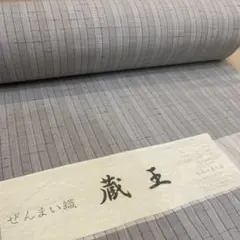 蔵王
ぜんまい織